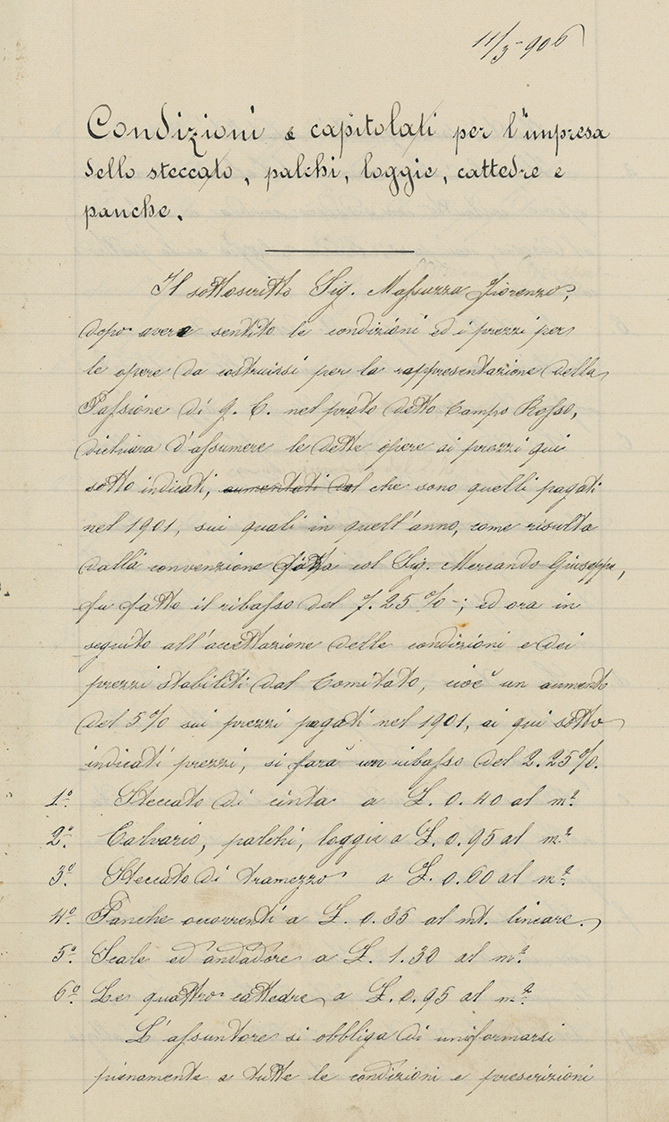 11/3-906
Condizioni e capitolati per l'impresa
dello steccato, palchi, loggie, cattedre e
panche.
Il sottoscritto Sig. Massuzza Fiorenzo,
dopo avere sentito le condizioni ed i prezzi per
le opere da costruirsi per la rappresentazione della
Passione di G. C. nel prato detto Campo Rosso,
dichiara d'assumere le dette opere ai prezzi qui
sotto indicati, aumentati del che sono quelli pagati
nel 1901, sui quali in quell'anno, come risulta
dalla convenzione fatta col Sig. Mercando Giuseppe,
fu fatto il ribasso del 7.25%; ed ora in
seguito all'accettazione delle condizioni e dei
prezzi stabiliti dal Comitato, cioè un aumento
del 5% sui prezzi pagati nel 1901, ai qui sotto
indicati prezzi, si farà un ribasso del 2.25%.
1º. Steccato di cinta a L. 0.40 al m.²
2º. Calvario, palchi, loggie a L. 0.95 al m.²
3º. Steccato di tramezzo a L. 0.60 al m.²
4º. Panche ocorrenti a L. 0.35 al mt. lineare.
5º. Scale ed andadore a L. 1.30 al m.²
6º. Le quattro cattedre a L. 0.95 al m.²
L'assuntore si obbliga di uniformarsi
pienamente a tutte le condizioni e prescrizioni